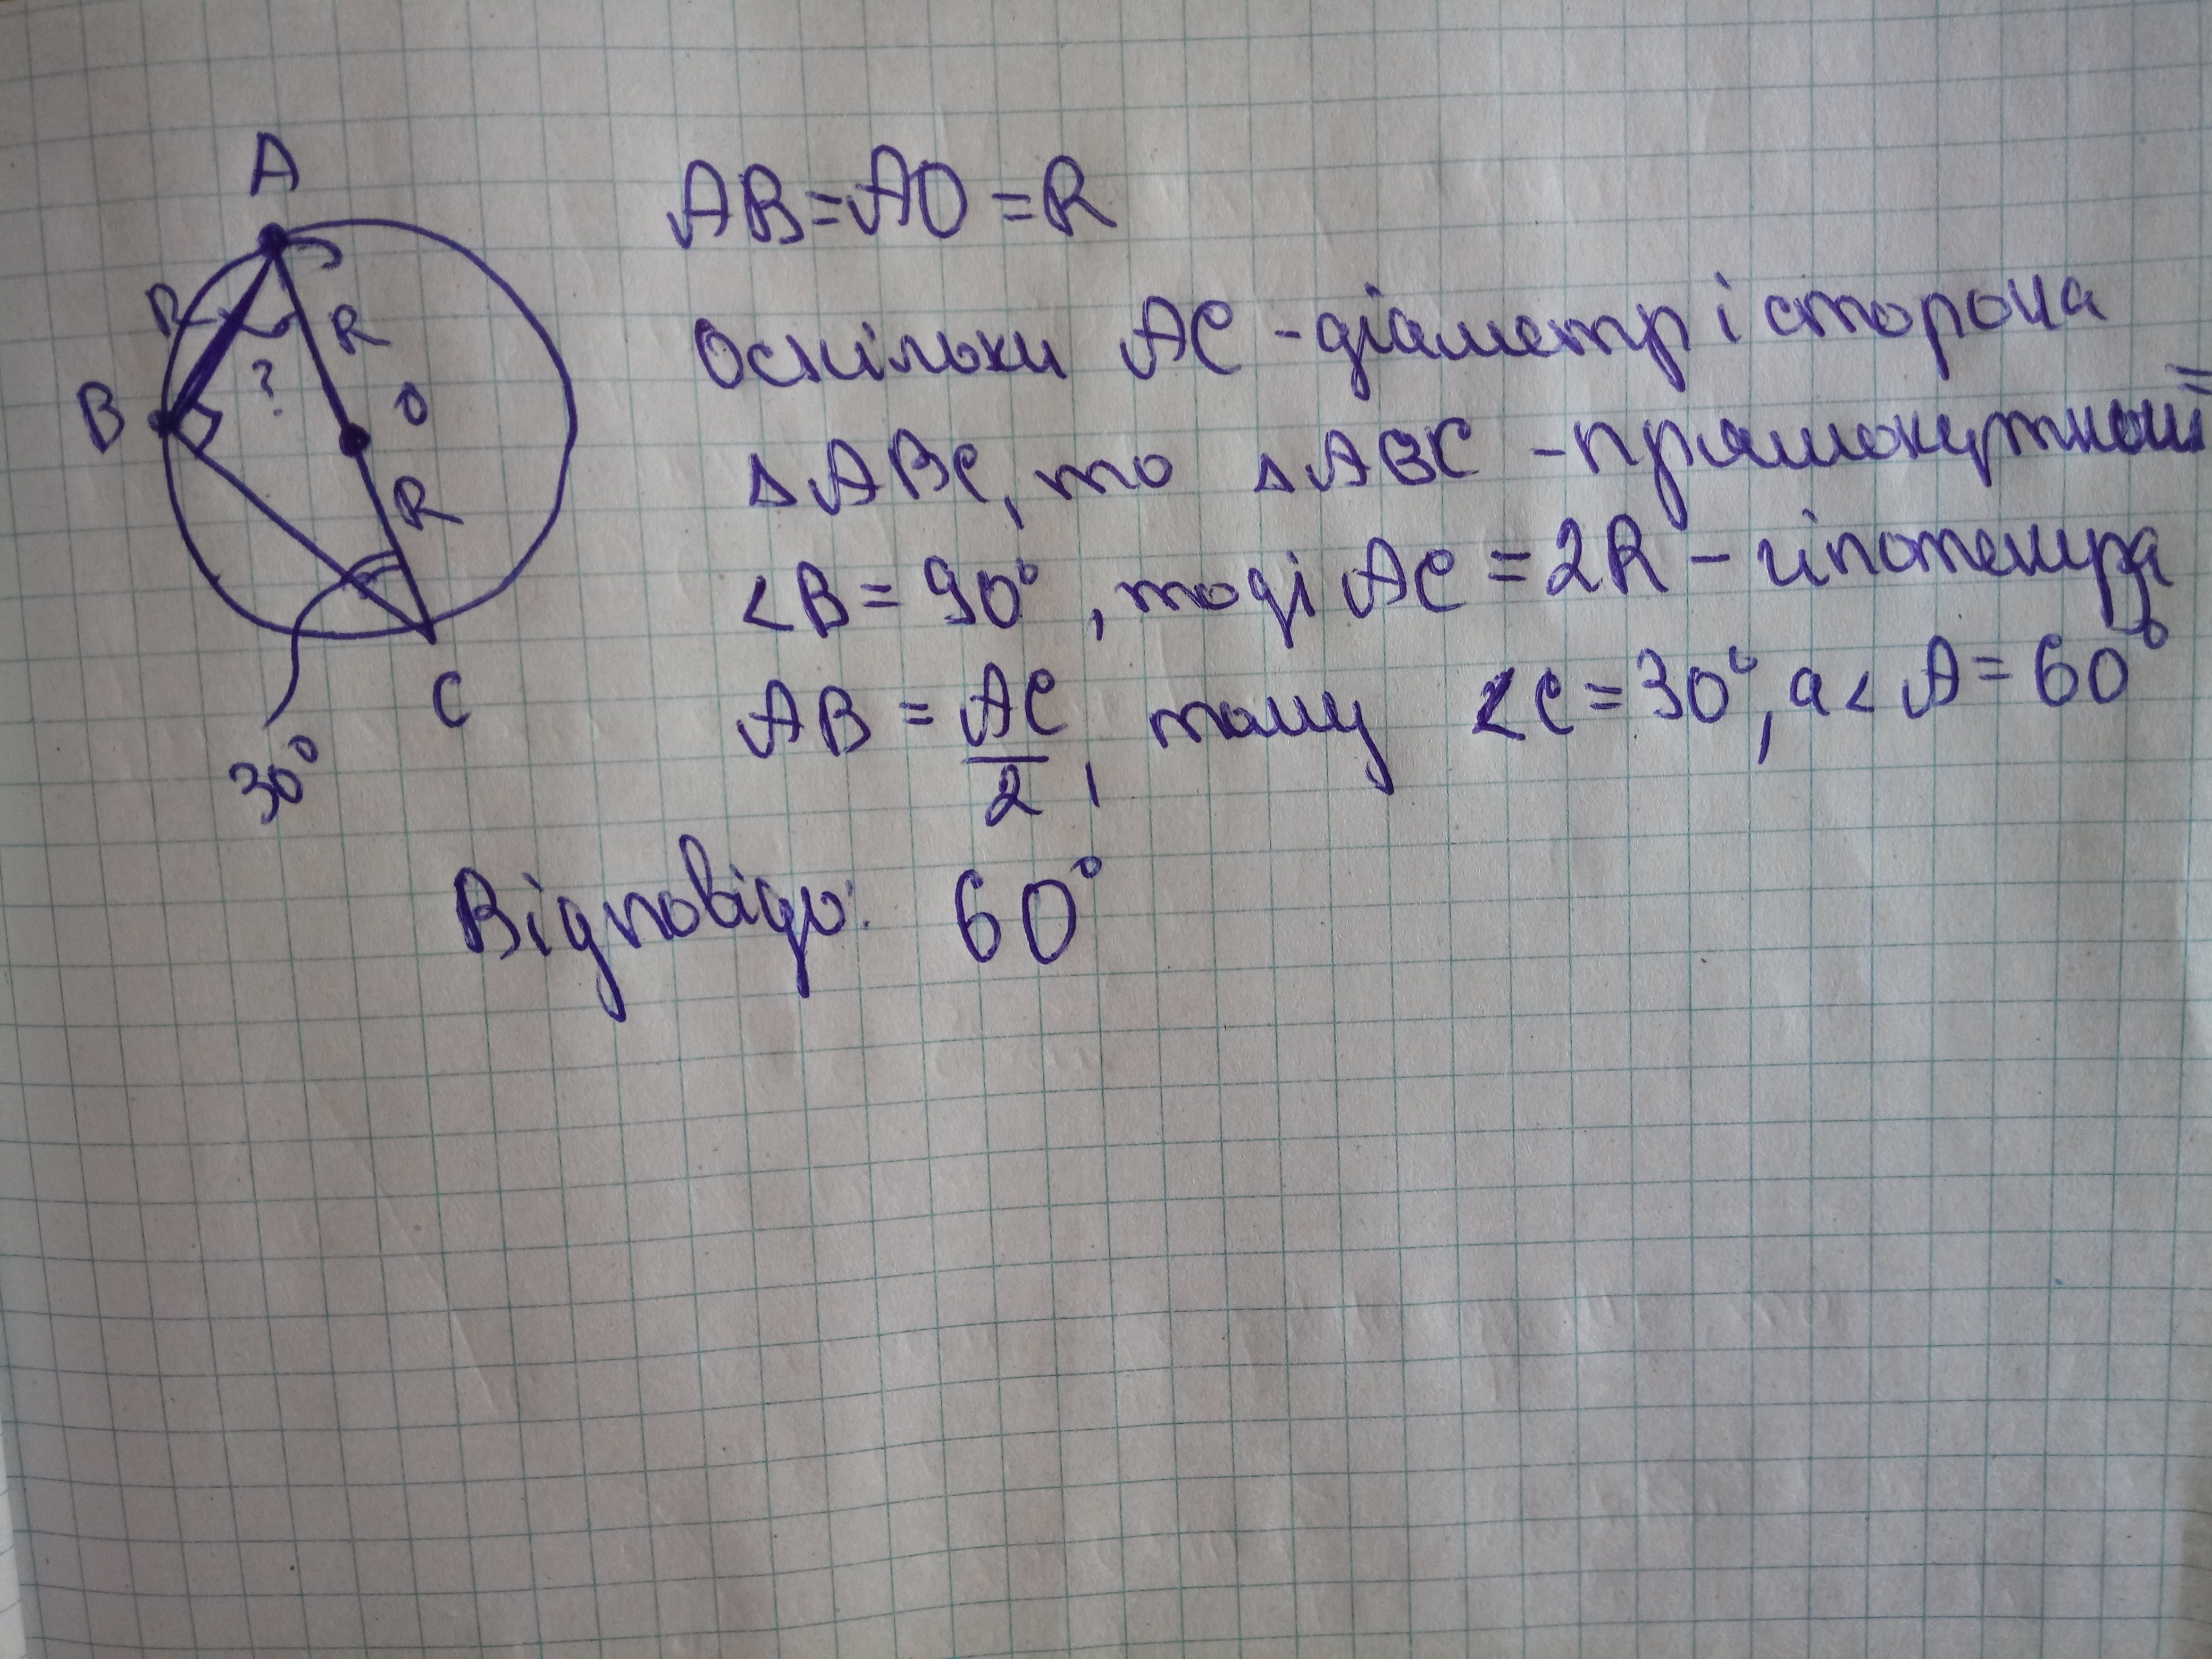 A
AB = AO = R
R
R
Оскільки AC - діаметр і сторона
B
?
O
R
△ABC, то △ABC - прямокутний =
<B = 90°, тоді AC = 2R - гіпотенуза
C
AB = AC/2, тому <C = 30°, а <A = 60°
30°
Відповідь: 60°